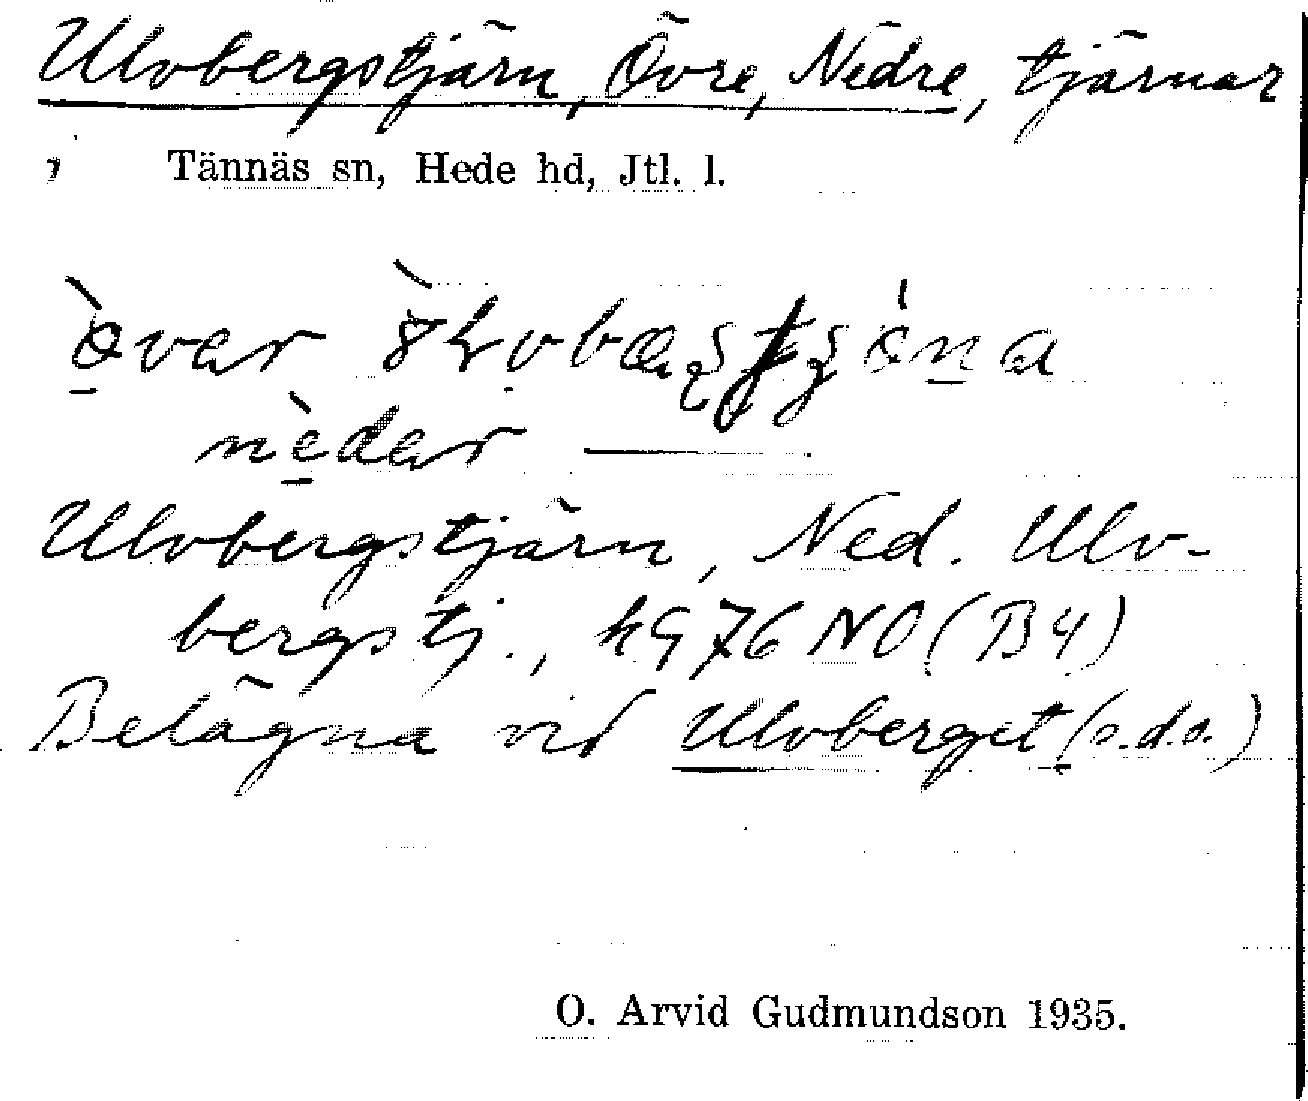 Ulvbergstjärn, Övre, Nedre, tjärnar
Tännäs sn, Hede hd, Jtl. l.
nèdar
Ulvbergstjärn, Ned. Ulv-
bergstj., kq 76 NO (B4)
Belägna vid Ulvberget (s.d.o.)
O. Arvid Gudmundson 1935.